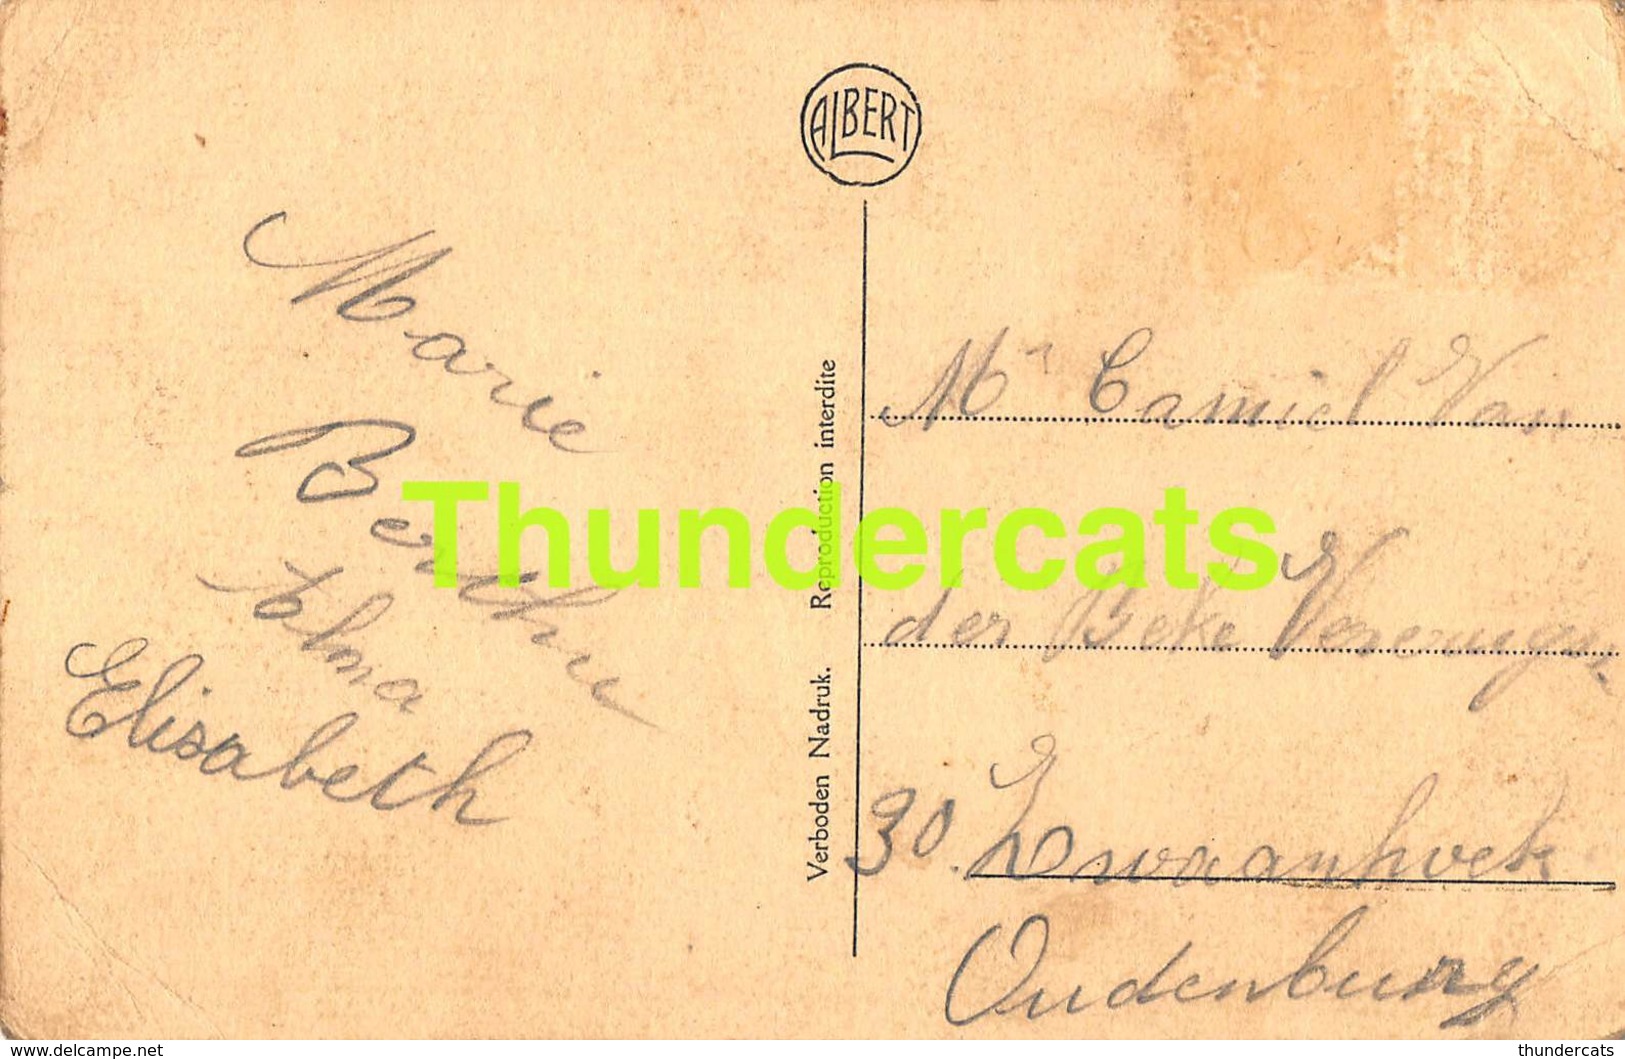 ALBERT
Marie
Bertha
Alma
Elisabeth
Thundercats
Verboden Nadruk. Reproduction interdite
Mr Camiel Van
der Beke
30. Zwaanhoek
Oudenburg
www.delcampe.net
thundercats